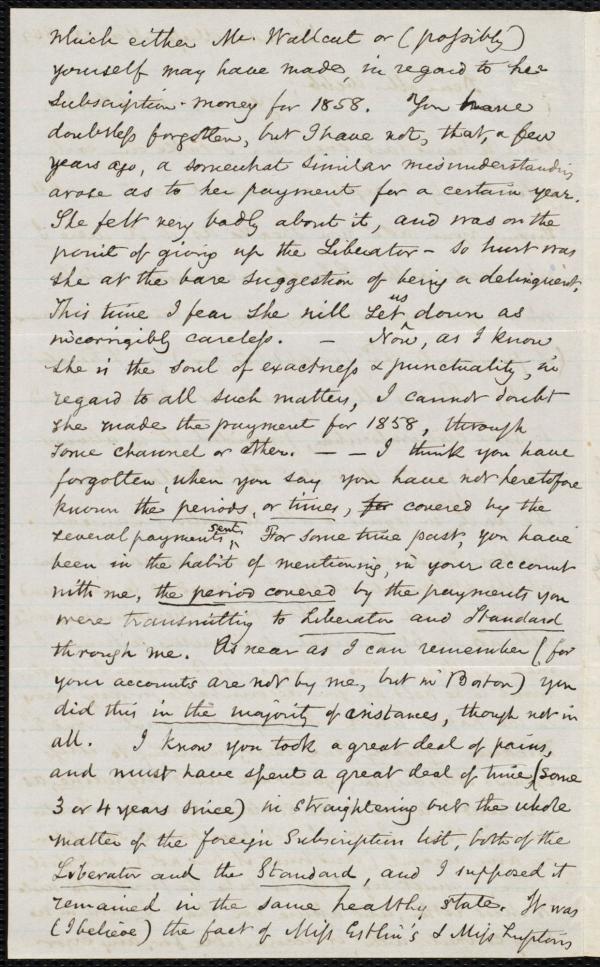 which either Mr. Wallcut or (possibly)
yourself may have made, in regard to her
Subscription-money for 1858. You have
doubtless forgotten, but I have not, that, a few
years ago, a somewhat similar misunderstanding
arose as to her payment for a certain year.
She felt very badly about it, and was on the
point of giving up the Liberator – so hurt was
she at the bare suggestion of being a delinquent.
This time I fear she will set us down as
incorrigibly careless. – Now, as I know
she is the soul of exactness & punctuality, in
regard to all such matters, I cannot doubt
she made the payment for 1858, through
some channel or other. – – I think you have
forgotten, when you say you have not heretofore
known the periods, or times, for covered by the
several payments sent. For some time past, you have
been in the habit of mentioning, in your account
with me, the period covered by the payments you
were transmitting to Liberator and Standard
through me. As near as I can remember (for
your accounts are not by me, but in Boston) you
did this in the majority of instances, though not in
all. I know you took a great deal of pains,
and must have spent a great deal of time, (some
3 or 4 years since) in straightening out the whole
matter of the foreign Subscription list, both of the
Liberator and the Standard, and I supposed it
remained in the same healthy state. It was
(I believe) the fact of Miss Estlin's & Miss Lupton's